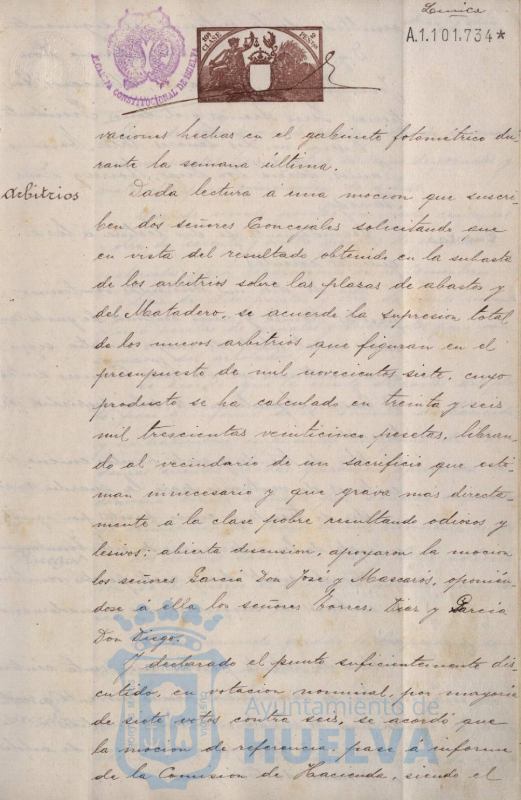 Lunica
A.1.101.734*
10ª CLASE
2 PESETAS
ALCALDIA CONSTITUCIONAL DE HUELVA
vaciones hechas en el gabinete fotométrico du-
rante la semana última.
Arbitrios
Dada lectura á una mocion que suscri-
ben dos señores Concejales solicitando que
en vista del resultado obtenido en la subasta
de los arbitrios sobre las plazas de abastos y
del Matadero, se acuerde la supresion total
de los nuevos arbitrios que figuran en el
presupuesto de mil novecientos siete, cuyo
producto se ha calculado en treinta y seis
mil trescientas veinticinco pesetas, libran-
do al vecindario de un sacrificio que esti-
man innecesario y que grava mas directa-
mente á la clase pobre resultando odiosos y
lesivos; abierta discusion, apoyaron la mocion
los señores Garcia Don José y Mascaros, oponién-
dose á ella los señores Torres, Diez y Garcia
Don Diego.
Y declarado el punto suficientemente dis-
cutido, en votacion nominal, por mayoria
de siete votos contra seis, se acordó que
la mocion de referencia, pase á informe
de la Comision de Hacienda, siendo el
Ayuntamiento de
HUELVA